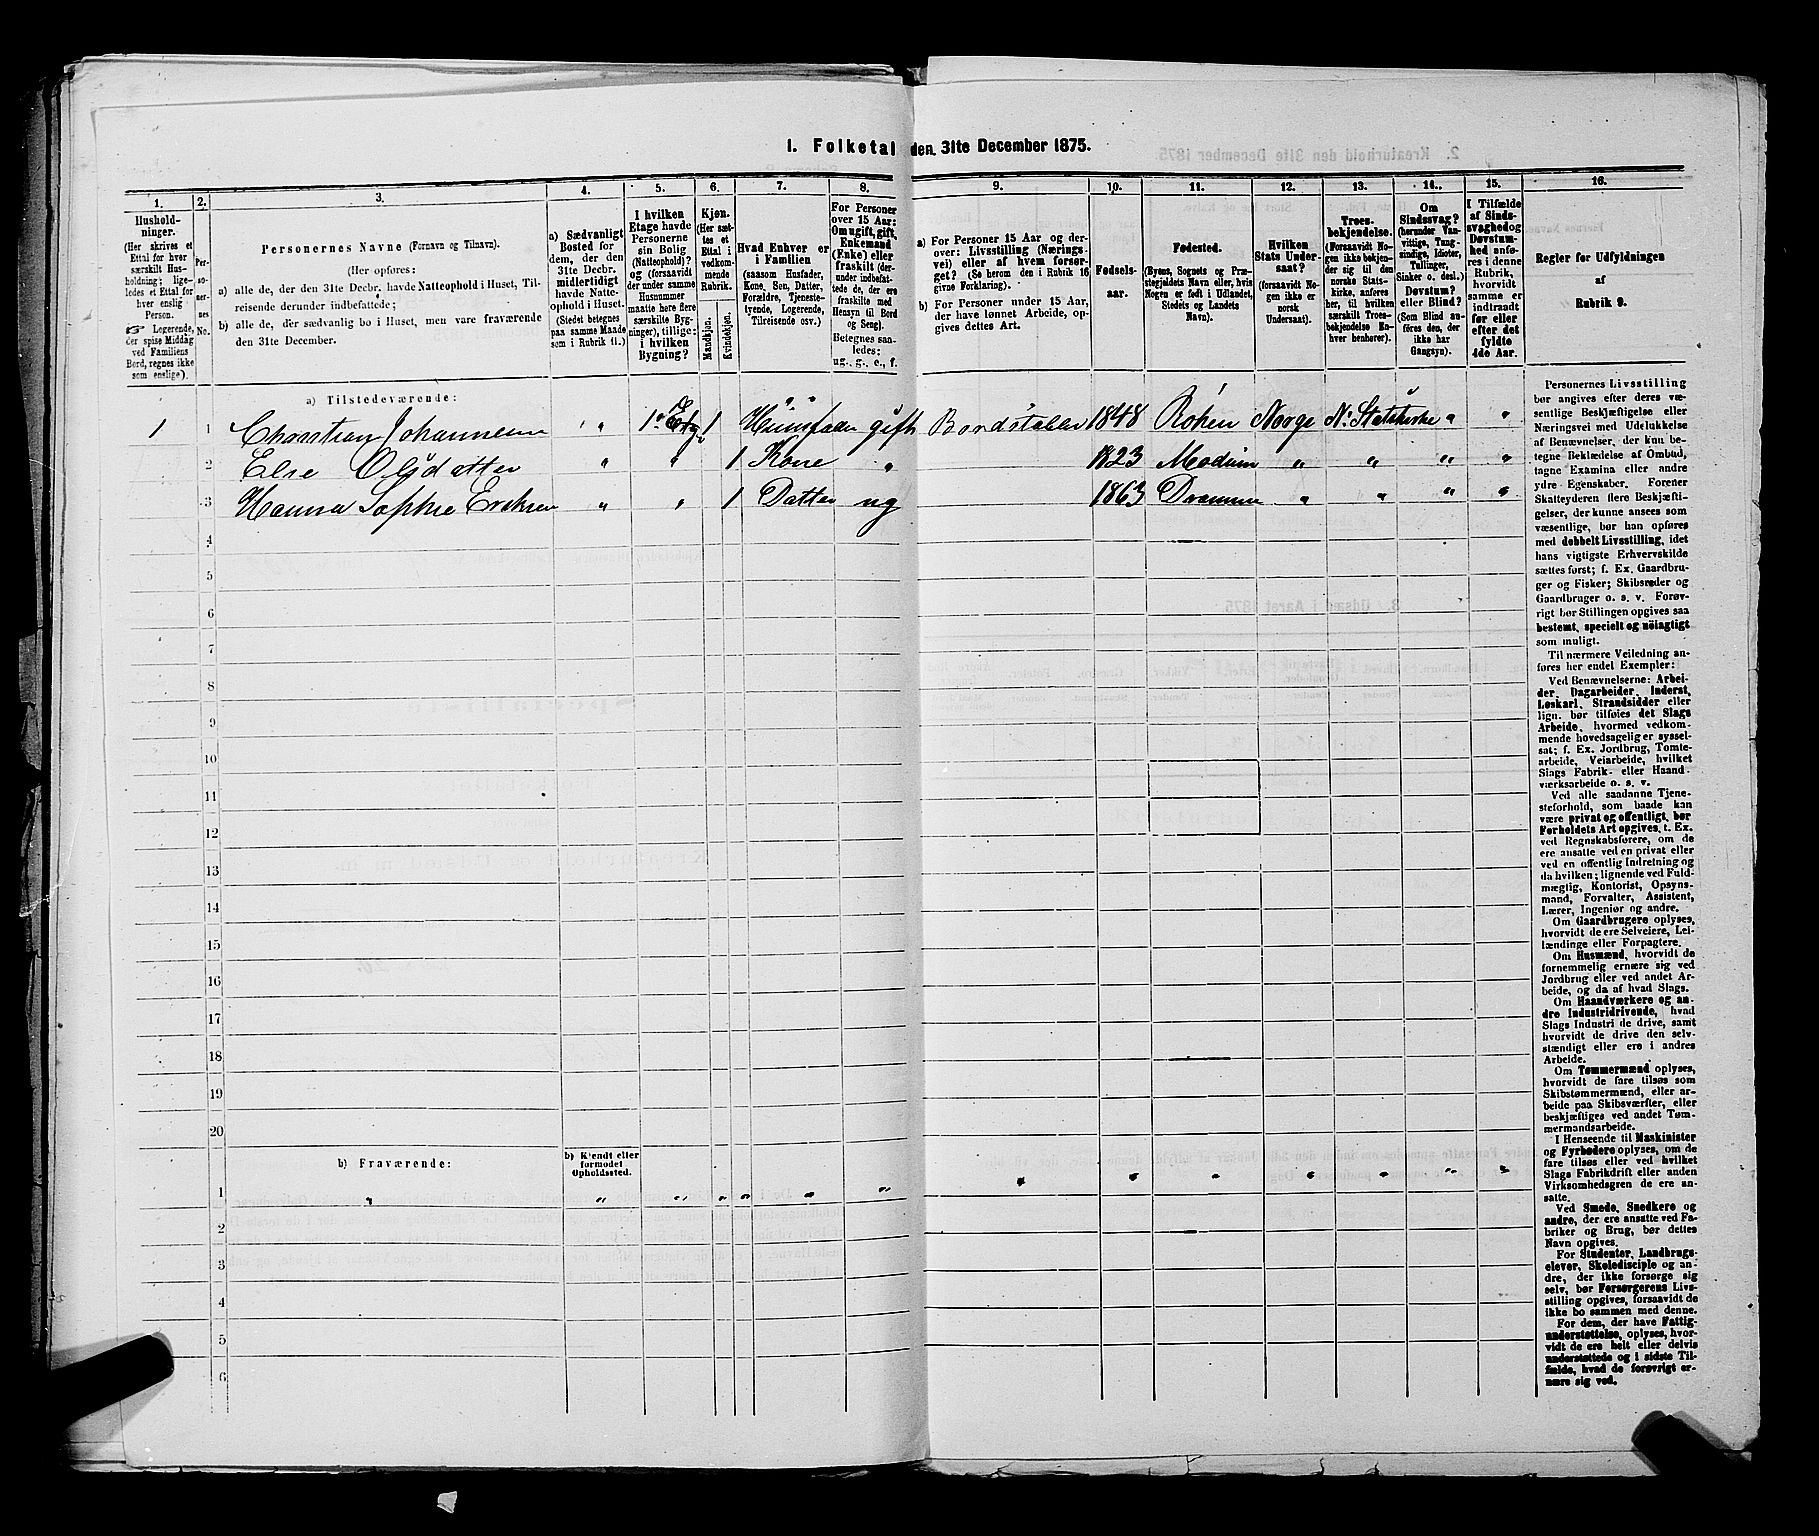 I. Folketal den 31te December 1875.
1. 2. 3. 4. 5. 6. 7. 8. 9. 10. 11. 12. 13. 14. 15. 16.
Hushold-
ninger.
(Her skrives et
Ettal for hver
særskilt Hus-
holdning; lige-
ledes et Ettal for
hver enslig
Person.
☞ Logerende,
der spise Middag
ved Familiens
Bord, regnes ikke
som enslige).
Per-
so-
ner-
nes
No.
Personernes Navne (Fornavn og Tilnavn).
(Her opføres:
a) alle de, der den 31te Decbr. havde Natteophold i Huset, Til-
reisende derunder indbefattede;
b) alle de, der sædvanlig bo i Huset, men vare fraværende
den 31te December.
a) Sædvanligt
Bosted for
dem, der den
31te Decbr.
midlertidigt
havde Natte-
ophold i Huset.
(Stedet betegnes
paa samme Maade
som i Rubrik 11.)
I hvilken
Etage havde
Personerne
sin Bolig
(Natteophold)?
og (forsaavidt
der under samme
Husnummer
maatte høre flere
særskilte Byg-
ninger), tillige:
i hvilken
Bygning?
Kjøn.
(Her sæt-
tes et
Ettal i
vedkom-
mende
Rubrik.
Mandkjøn.
Kvindekjøn.
Hvad Enhver er
i Familien
(saasom Husfader,
Kone, Søn, Datter,
Forældre, Tjeneste-
tyende, Logerende,
Tilreisende osv.)
For Personer
over 15 Aar:
Om ugift, gift,
Enkemand
(Enke) eller
fraskilt (der-
under indbefat-
tede de, der ere
fraskilte med
Hensyn til Bord
og Seng).
Betegnes saa-
ledes:
ug., g., e., f.
a) For Personer 15 Aar og der-
over: Livsstilling (Nærings-
vei) eller af hvem forsør-
get? (Se herom den i Rubrik 16
givne Forklaring).
b) For Personer under 15 Aar,
der have lønnet Arbeide, op-
gives dettes Art.
Fødsels-
aar.
Fødested.
(Byens, Sognets og Præ-
stegjeldets Navn eller, hvis
Nogen er født i Udlandet,
Stedets og Landets
Navn).
Hvilken
Stats Under-
saat?
(forsaavidt No-
gen ikke er
norsk
Undersaat).
Troes-
bekjendelse.
(Forsaavidt No-
gen ikke bekjen-
der sig til den
norske Stats-
kirke, anføres
her, til hvilken
særskilt Troes-
bekjendelse En-
hver henhører).
Om
Sindssvag?
(herunder Van-
vittige, Tung-
sindige, Idioter,
Tullinger,
Sinker o. desl.)
Døvstum?
eller Blind?
(Som Blind an-
føres den, der
ikke har
Gangsyn).
I Tilfælde
af Sinds-
svaghed og
Døvstum-
hed anfø-
res i denne
Rubrik,
hvorvidt
samme er
indtraadt
før eller
efter det
fyldte
4de Aar.
Regler for Udfyldningen
af
Rubrik 9.
a) Tilstedeværende:
1 1 Christian Johannesen " " 1 1 Huusfader gift Bordstabler 1848 Röken Norge N. Statskirke " "
2 Else Olsdatter " " 1 Kone " 1823 Modum " " " "
3 Hanna Sophie Eriksen " " 1 Datter ug 1863 Drammen " " " "
4
5
6
7
8
9
10
11
12
13
14
15
16
17
18
19
20
b) Fraværende:
b) Kjendt eller
formodet
Opholdssted.
1 " " " " " " " " " " " " " "
2
3
4
5
6
Personernes Livsstilling
bør angives efter deres væ-
sentlige Beskjæftigelse eller
Næringsvei med Udelukkelse
af Benævnelser, der kun be-
tegne Beklædelse af Ombud,
tagne Examina eller andre
ydre Egenskaber. Forener
Skatteyderen flere Beskjæfti-
gelser, der kunne ansees som
væsentlige, bør han opføres
med dobbelt Livsstilling, idet
hans vigtigste Erhvervskilde
sættes først; f. Ex. Gaardbru-
ger og Fisker; Skibsreder og
Gaardbruger o. s. v. Forøv-
rigt bør Stillingen opgives saa
bestemt, specielt og nöiagtigt
som muligt.
Til nærmere Veiledning an-
føres her endel Exempler:
Ved Benævnelserne: Arbei-
der, Dagarbeider, Inderst,
Løskarl, Strandsidder eller
lign. bør tilføies det Slags
Arbeide, hvormed vedkom-
mende hovedsagelig er syssel-
sat; f. Ex. Jordbrug, Tomte-
arbeide, Veiarbeide, hvilket
Slags Fabrik- eller Haand-
værksarbeide o. s. v.
Ved alle saadanne Tjene-
steforhold, som baade kan
være privat og offentligt, bør
Forholdets Art opgives, t. Ex.
ved Regnskabsførere, om de
ere ansatte ved en privat eller
ved en offentlig Indretning og
da hvilken; lignende ved Fuld-
mægtig, Kontorist, Opsyns-
mand, Forvalter, Assistent,
Lærer, Ingeniør og andre.
Om Gaardbrugere oplyses,
hvorvidt de ere Selveiere, Lei-
lændinge eller Forpagtere.
Om Husmænd, hvorvidt de
fornemmelig ernære sig ved
Jordbrug eller ved andet Ar-
beide, og da af hvad Slags.
Om Haandværkere og an-
dre Industridrivende, hvad
Slags Industri de drive, samt
hvorvidt de drive den selv-
stændigt eller ere i andres
Arbeide.
Om Tømmermænd oplyses,
hvorvidt de fare tilsøs som
Skibstømmermænd, eller ar-
beide paa Skibsværfter, eller
beskjæftiges ved andet Tøm-
mermandsarbeide.
I Henseende til Maskinister
og Fyrbødere oplyses, om de
fare tilsøs eller ved hvilket
Slags Fabrikdrift eller anden
Virksomhedsgren de ere an-
satte.
Ved Smede, Snedkere og
andre, der ere ansatte ved Fa-
briker og Brug, bør dettes
Navn opgives.
For Studenter, Landbrugs-
elever, Skoledisciple og an-
dre, der ikke forsørge sig
selv, bør Forsørgerens Livs-
stilling opgives, forsaavidt de
ikke bo sammen med denne.
For dem, der have Fattig-
understøttelse, oplyses, hvor-
vidt de ere helt eller delvis
understøttede og i sidste Til-
fælde, hvad de forøvrigt er-
nære sig ved.